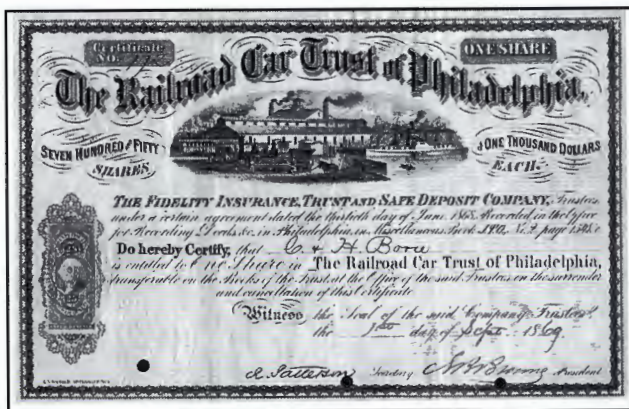 Certificate
No.
ONE SHARE
The Railroad Car Trust of Philadelphia.
SEVEN HUNDRED and FIFTY
SHARES
ONE THOUSAND DOLLARS
EACH.
THE FIDELITY INSURANCE, TRUST AND SAFE DEPOSIT COMPANY, Trustees
under a certain agreement dated the thirtieth day of June 1868. Recorded in the Office
for Recording Deeds &c. in Philadelphia, in Miscellaneous Book No. 2 page
Do hereby Certify, that C. & H. Borie
is entitled to One Share in The Railroad Car Trust of Philadelphia,
transferable on the Books of the Trust at the Office of the said Trustees on the surrender
and cancellation of this Certificate
Witness the Seal of the said Company Trustees.
the 1st day of Sept. 1869
R. Patterson Secretary N. B. Browne President